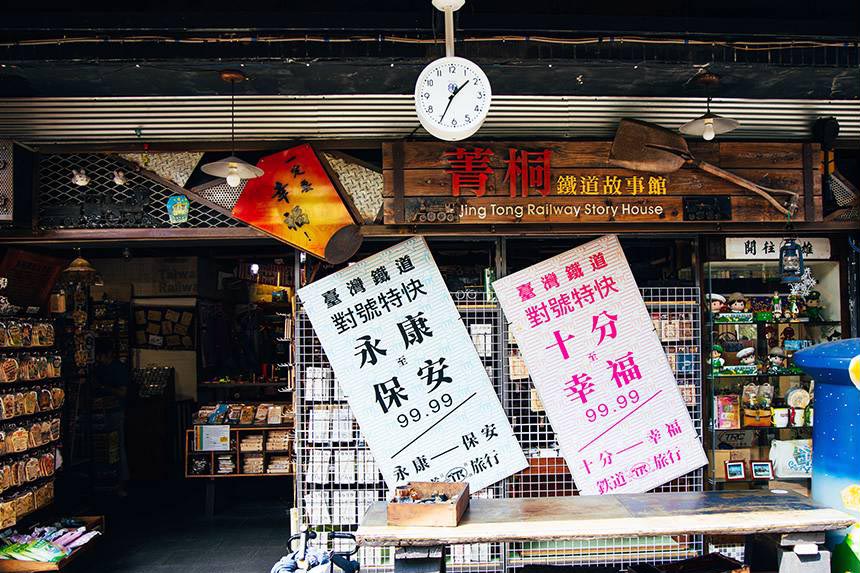 一定要
幸
福
!
菁桐鐵道故事館
Jing Tong Railway Story House
開往
臺灣鐵道
對號特快
永康
至
保安
99.99
永康——保安
旅行
臺灣鐵道
對號特快
十分
至
幸福
99.99
十分——幸福
鉄道 旅行
Taiwan
Railway